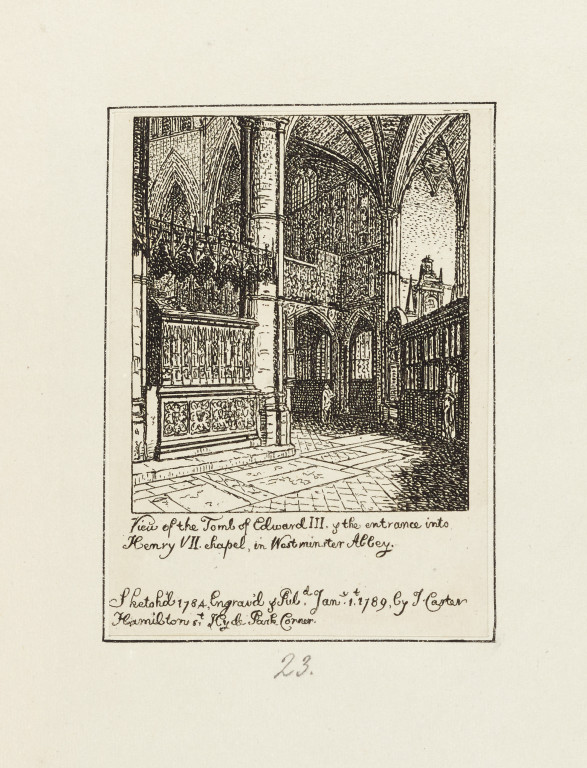 View of the Tomb of Edward III. & the entrance into
Henry VII. chapel, in Westminster Abbey.
Sketch'd 1784, Engrav'd & Pub.d Jan.y 1.t 1789, by J. Carter
Hamilton st. Hyde Park Corner.
23.